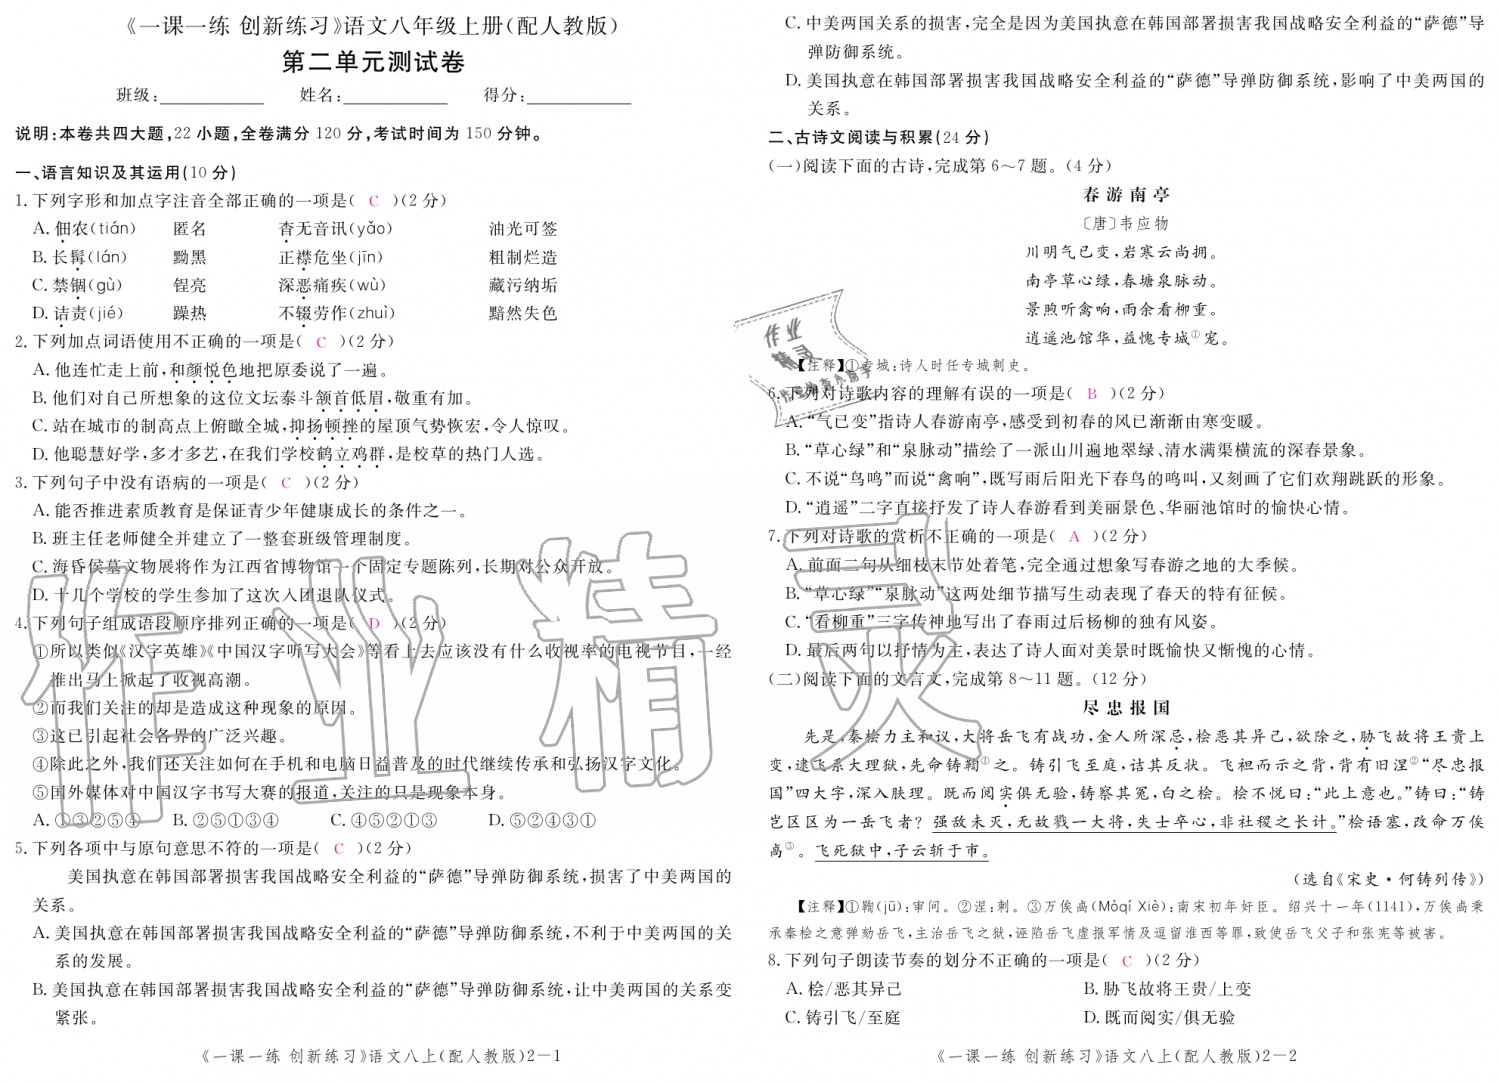 《一课一练 创新练习》语文八年级上册(配人教版)
第二单元测试卷
班级:____________ 姓名:____________ 得分:____________
说明:本卷共四大题,22 小题,全卷满分 120 分,考试时间为 150 分钟。
一、语言知识及其运用(10 分)
1. 下列字形和加点字注音全部正确的一项是( C )(2 分)
A. 佃农(tián) 匿名 杳无音讯(yǎo) 油光可签
B. 长髯(lán) 黝黑 正襟危坐(jīn) 粗制烂造
C. 禁锢(gù) 锃亮 深恶痛疾(wù) 藏污纳垢
D. 诘责(jié) 躁热 不辍劳作(zhuì) 黯然失色
2. 下列加点词语使用不正确的一项是( C )(2 分)
A. 他连忙走上前,和颜悦色地把原委说了一遍。
B. 他们对自己所想象的这位文坛泰斗颔首低眉,敬重有加。
C. 站在城市的制高点上俯瞰全城,抑扬顿挫的屋顶气势恢宏,令人惊叹。
D. 他聪慧好学,多才多艺,在我们学校鹤立鸡群,是校草的热门人选。
3. 下列句子中没有语病的一项是( C )(2 分)
A. 能否推进素质教育是保证青少年健康成长的条件之一。
B. 班主任老师健全并建立了一整套班级管理制度。
C. 海昏侯墓文物展将作为江西省博物馆一个固定专题陈列,长期对公众开放。
D. 十几个学校的学生参加了这次入团退队仪式。
4. 下列句子组成语段顺序排列正确的一项是( D )(2 分)
①所以类似《汉字英雄》《中国汉字听写大会》等看上去应该没有什么收视率的电视节目,一经
推出马上掀起了收视高潮。
②而我们关注的却是造成这种现象的原因。
③这已引起社会各界的广泛兴趣。
④除此之外,我们还关注如何在手机和电脑日益普及的时代继续传承和弘扬汉字文化。
⑤国外媒体对中国汉字书写大赛的报道,关注的只是现象本身。
A. ①③②⑤④ B. ②⑤①③④ C. ④⑤②①③ D. ⑤②④③①
5. 下列各项中与原句意思不符的一项是( C )(2 分)
美国执意在韩国部署损害我国战略安全利益的“萨德”导弹防御系统,损害了中美两国的
关系。
A. 美国执意在韩国部署损害我国战略安全利益的“萨德”导弹防御系统,不利于中美两国的关
系的发展。
B. 美国执意在韩国部署损害我国战略安全利益的“萨德”导弹防御系统,让中美两国的关系变
紧张。
《一课一练 创新练习》语文八上(配人教版)2—1
C. 中美两国关系的损害,完全是因为美国执意在韩国部署损害我国战略安全利益的“萨德”导
弹防御系统。
D. 美国执意在韩国部署损害我国战略安全利益的“萨德”导弹防御系统,影响了中美两国的
关系。
二、古诗文阅读与积累(24 分)
(一)阅读下面的古诗,完成第 6～7 题。(4 分)
春游南亭
〔唐〕韦应物
川明气已变,岩寒云尚拥。
南亭草心绿,春塘泉脉动。
景煦听禽响,雨余看柳重。
逍遥池馆华,益愧专城①宠。
【注释】①专城:诗人时任专城刺史。
6. 下列对诗歌内容的理解有误的一项是( B )(2 分)
A. “气已变”指诗人春游南亭,感受到初春的风已渐渐由寒变暖。
B. “草心绿”和“泉脉动”描绘了一派山川遍地翠绿、清水满渠横流的深春景象。
C. 不说“鸟鸣”而说“禽响”,既写雨后阳光下春鸟的鸣叫,又刻画了它们欢翔跳跃的形象。
D. “逍遥”二字直接抒发了诗人春游看到美丽景色、华丽池馆时的愉快心情。
7. 下列对诗歌的赏析不正确的一项是( A )(2 分)
A. 前面二句从细枝末节处着笔,完全通过想象写春游之地的大季候。
B. “草心绿”“泉脉动”这两处细节描写生动表现了春天的特有征候。
C. “看柳重”三字传神地写出了春雨过后杨柳的独有风姿。
D. 最后两句以抒情为主,表达了诗人面对美景时既愉快又惭愧的心情。
(二)阅读下面的文言文,完成第 8～11 题。(12 分)
尽忠报国
先是,秦桧力主和议,大将岳飞有战功,金人所深忌,桧恶其异己,欲除之,胁飞故将王贵上
变,逮飞系大理狱,先命铸鞫①之。铸引飞至庭,诘其反状。飞袒而示之背,背有旧涅②“尽忠报
国”四大字,深入肤理。既而阅实俱无验,铸察其冤,白之桧。桧不悦曰:“此上意也。”铸曰:“铸
岂区区为一岳飞者?强敌未灭,无故戮一大将,失士卒心,非社稷之长计。”桧语塞,改命万俟
卨③。飞死狱中,子云斩于市。
(选自《宋史·何铸列传》)
【注释】①鞫(jū):审问。②涅:刺。③万俟卨(Mòqí Xiè):南宋初年奸臣。绍兴十一年(1141),万俟卨秉
承秦桧之意弹劾岳飞,主治岳飞之狱,诬陷岳飞虚报军情及逗留淮西等罪,致使岳飞父子和张宪等被害。
8. 下列句子朗读节奏的划分不正确的一项是( C )(2 分)
A. 桧/恶其异己 B. 胁飞故将王贵/上变
C. 铸引飞/至庭 D. 既而阅实/俱无验
《一课一练 创新练习》语文八上(配人教版)2—2
作业精灵
作业
精灵